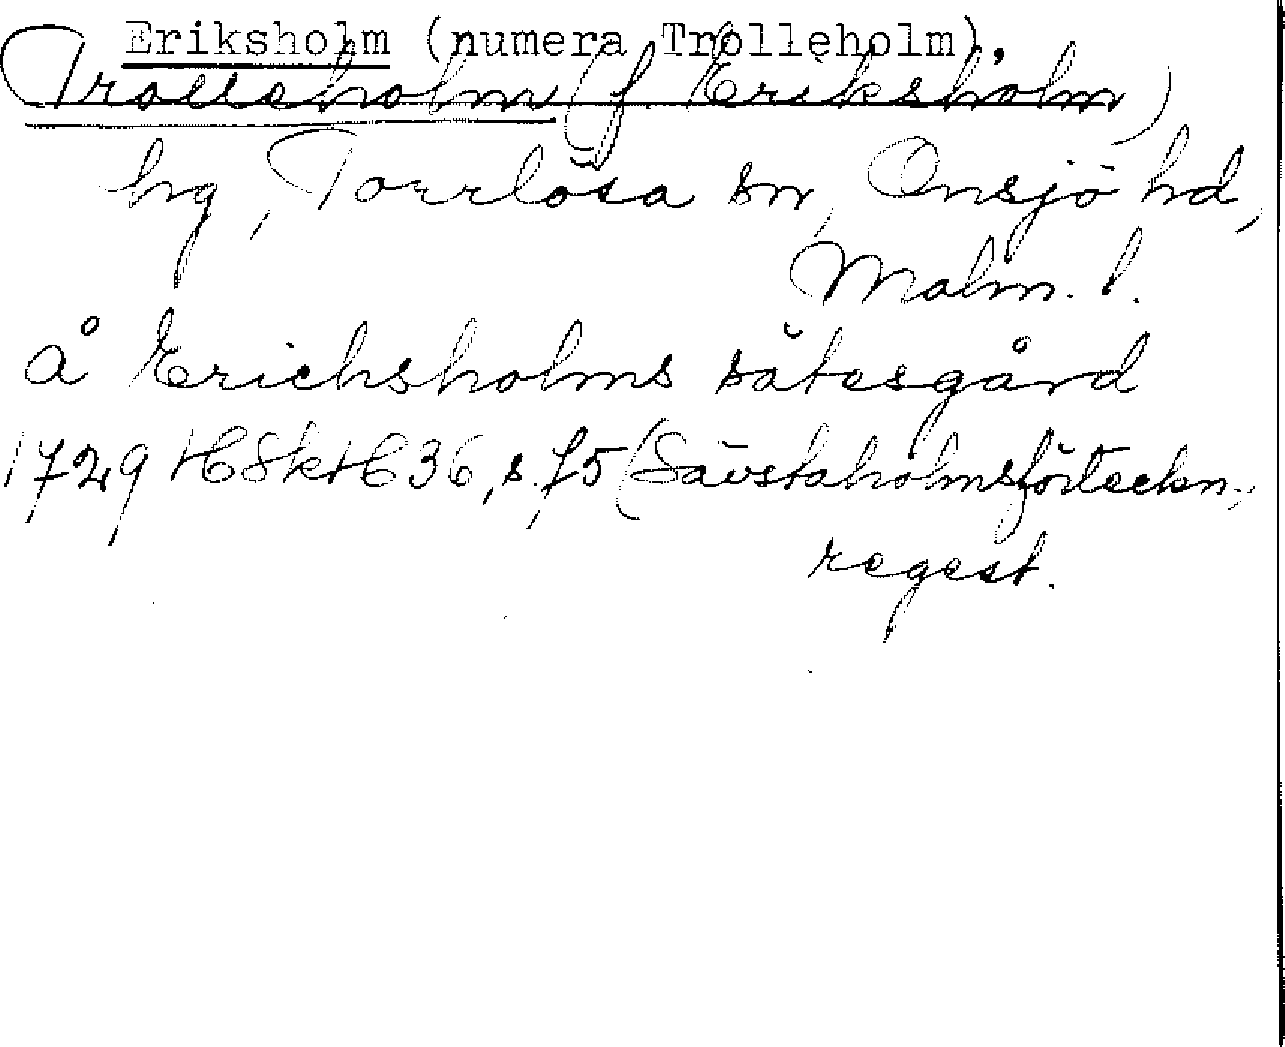 Eriksholm (numera Trolleholm),
Trolleholm (f. Eriksholm)
hg, Torrlösa sn, Onsjö hd,
Malm. l.
å Erichsholms sätesgård
1729 HSkH 36, s. 75 (Sävstaholmsförteckn.,
regest.